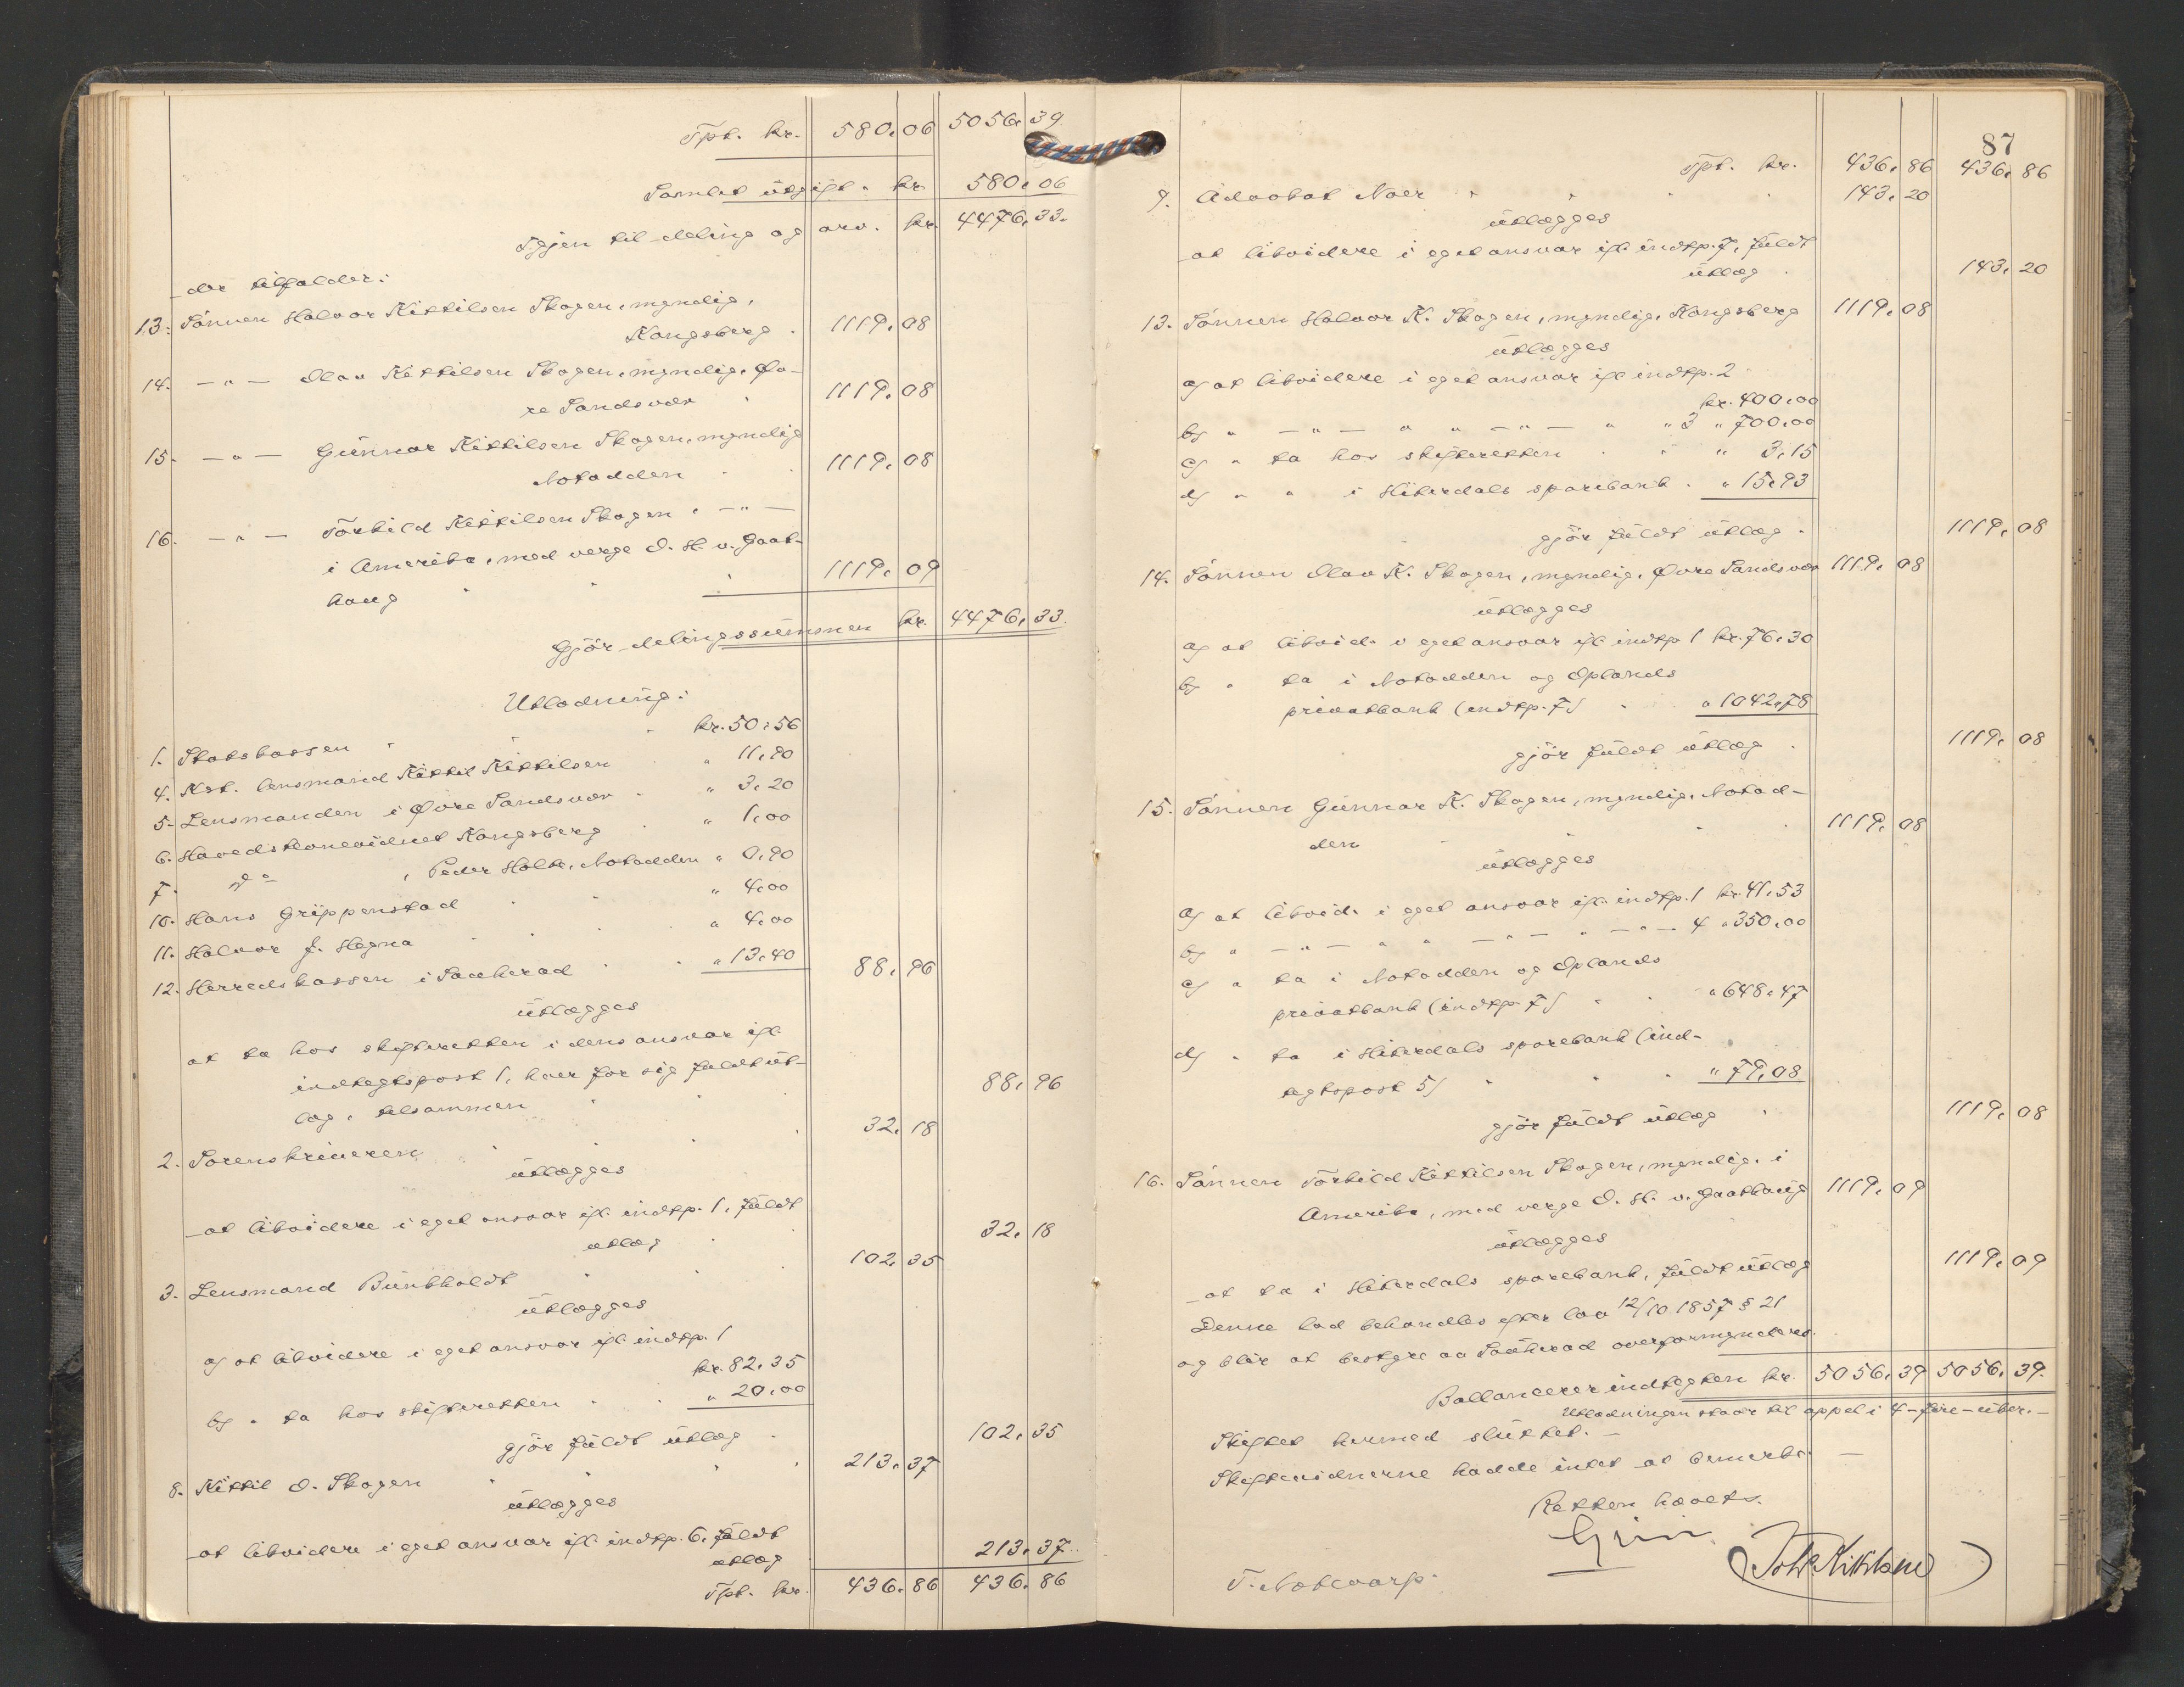 Tpt. kr. 580.06 5056.39.
Samlet utgift. kr. 580.06
Igjen til deling og arv. kr. 4476.33.
der tilfalder:
13. Sönnen Halvor Kittilsen Skogen, myndig,
Kongsberg. 1119.08
14. —"— Olav Kittilsen Skogen, myndig, Öv-
re Sandsvær 1119.08
15. —"— Gunnar Kittilsen Skogen, myndig
Notodden 1119.08
16. —"— Torkild Kittilsen Skogen, —"—
i Amerika, med verge O. H. v. Gaat-
haug 1119.09
Gjör delingssummen kr. 4476.33.
Utlodning:
1. Statskassen kr. 50.56
4. Kst. lensmand Kittil Kittilsen " 11.90
5. Lensmanden i Øvre Sandsvær " 3.20
6. Hovedstevnevidnet Kongsberg " 1.00
7. do , Peder Holte, Notodden " 0.90
10. Hans Grippenstad " 4.00
11. Halvor J. Hegna " 4.00
12. Herredskassen i Sauherad " 13.40 88.96
utlægges
at ta hos skifteretten i dens ansvar ifl.
indtegtspost 1, hver for sig fuldt ut-
læg, tilsammen 88.96
2. Sorenskriveren 32.18
utlægges
at likvidere i eget ansvar ifl. indtp. 1, fuldt
utlæg 32.18
3. Lensmand Bunkholdt 102.35
utlægges
a) at likvidere i eget ansvar ifl. indtp. 1
kr. 82.35
b) " ta hos skifteretten " 20.00
gjör fuldt utlæg 102.35
8. Kittil O. Skogen 213.37
utlægges
at likvidere i eget ansvar ifl. indtp. 6, fuldt
utlæg 213.37.
Tpt. kr. 436.86 436.86
87
Tpt. kr. 436.86 436.86
9. Advokat Noer 143.20
utlægges
at likvidere i eget ansvar ifl. indtp. 7, fuldt
utlæg 143.20
13. Sönnen Halvor K. Skogen, myndig, Kongsberg 1119.08
utlægges
a) at likvidere i eget ansvar ifl. indtp. 2
kr. 400.00
b) " —"— " " —"— " " 3 " 700.00
c) " ta hos skifteretten " 3.15
d) " " i Hiterdals sparebank " 15.93
gjör fuldt utlæg 1119.08
14. Sönnen Olav K. Skogen, myndig, Øvre Sandsvær 1119.08
utlægges
a) at likvid. i eget ansvar ifl. indtp. 1 kr. 76.30
b) " ta i Notodden og Oplands
privatbank (indtp. 7) " 1042.78
gjör fuldt utlæg 1119.08
15. Sönnen Gunnar K. Skogen, myndig, Notod-
den 1119.08
utlægges
a) at likvid. i eget ansvar ifl. indtp. 1 kr. 41.53
b) " —"— " " —"— " —"— 4 " 350.00
c) " ta i Notodden og Oplands
privatbank (indtp. 7) " 648.47
d) " ta i Hiterdals sparebank (ind-
tegtspost 5) " 79.08
gjör fuldt utlæg 1119.08
16. Sönnen Torkild Kittilsen Skogen, myndig, i
Amerika, med verge O. H. v. Gaathaug 1119.09
utlægges
at ta i Hiterdals sparebank, fuldt utlæg 1119.09
Denne lod behandles efter lov 12/10 1857 § 21
og blir at bestyre av Sauherad overformynderi.
Ballancerer indtegten kr. 5056.39 5056.39.
Utlodningen staar til appel i 4-fire-uker.—
Skiftet hermed sluttet.—
Skiftevidnerne hadde intet at bemerke.—
Retten hævet.
T. Notevarp.